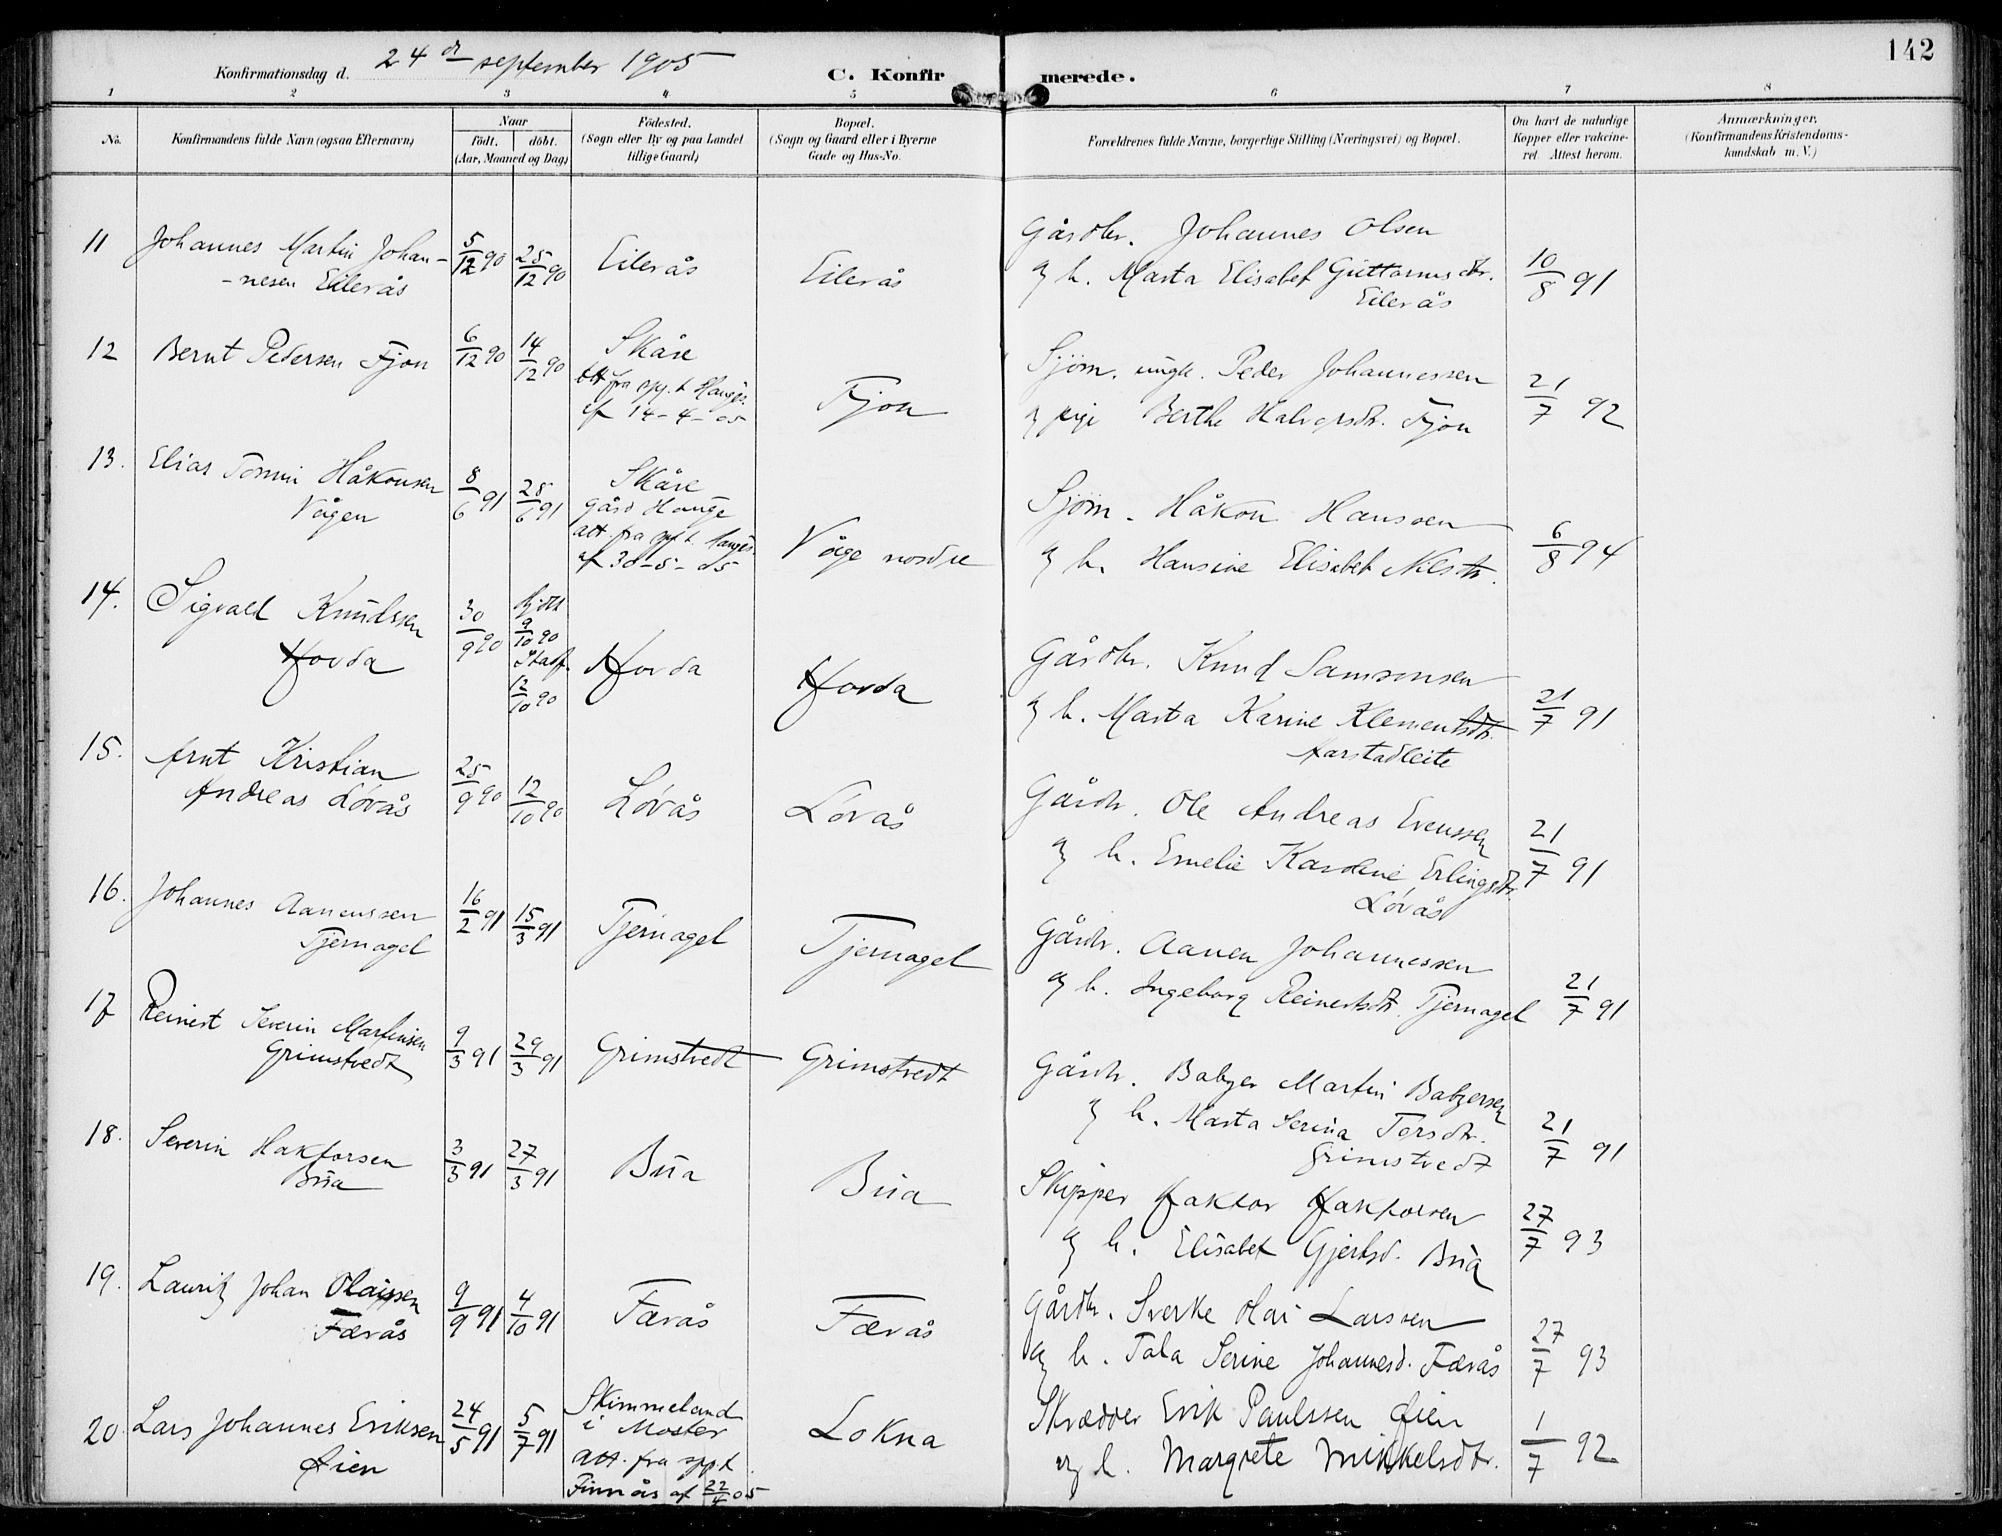 142
Konfirmationsdag d. 24de september 1905
C. Konfirmerede.
1 2 3 4 5 6 7 8
No.
Konfirmandens fulde Navn (ogsaa Efternavn)
Naar
Födt. döbt.
(Aar, Maaned og Dag)
Födested.
(Sogn eller By og paa Landet
tillige Gaard)
Bopæl.
(Sogn og Gaard eller i Byerne
Gade og Hus-No.
Forældrenes fulde Navne, borgerlige Stilling (Næringsvei) og Bopæl.
Om havt de naturlige
Kopper eller vakcine-
ret. Attest herom.
Anmærkninger.
(Konfirmandens Kristendoms-
kundskab m. V.)
11 Johannes Martin Johan-
-nesen Eilerås
5/12 90
25/12 90
Eilerås
Eilerås
Gårdbr. Johannes Olsen
og h. Marta Elisabet Guttormsdtr.
Eilerås
10/8 91
12 Bernt Pedersen Fjon
6/12 90
14/12 90
Skåre
att fra spg.t Hauges.
af 14-4-05
Fjon
Sjöm. ungk. Peder Johannessen
og pige Berthe Halvorsdtr. Fjon
21/7 92
13. Elias Tomin Håkonsen
Vågen
8/6 91
28/6 91
Skåre
gård Hauge
att. fra spt. Hauges.
af 30-5-05
Våge nordre
Sjöm. Håkon Hansen
og h. Hansine Elisabet Nilsdtr.
6/8 94
14. Sigvald Knudssen
Hovda
30/9 90
hjdbt
9/10 90
Stadf.
12/10 90
Hovda
Hovda
Gårdbr. Knud Samsonsen
og h. Marta Karine Klementsdtr.
Aarstadleite
21/7 91
15. Arnt Kristian
Andreas Lövås
25/9 90
12/10 90
Lövås
Lövås
Gårdbr. Ole Andreas Evenssen
og h. Emelie Karoline Erlingsdtr.
Lövås
21/7 91
16. Johannes Aanenssen
Tjernagel
16/2 91
15/3 91
Tjernagel
Tjernagel
Gårdbr. Aanen Johannessen
og h. Ingeborg Reinertsdtr. Tjernagel
21/7 91
17 Reinert Severin Martinsen
Grimstvedt
9/3 91
29/3 91
Grimstvedt
Grimstvedt
Gårdbr. Babzer Martin Babzersen
og h. Marta Serina Torsdtr.
Grimstvedt
21/7 91
18. Severin Haktorsen
Bua
3/3 91
27/3 91
Bua
Bua
Skipper Haktor Haktorsen
og h. Elisabet Gjertsd. Bua
27/7 93
19. Lauritz Johan Olaissen
Færås
9/9 91
4/10 91
Færås
Færås
Gårdbr. Sverke Olai Larssen
og h. Tala Serine Johannesd. Færås
27/7 93
20. Lars Johannes Eriksen
Øien
24/5 91
5/7 91
Skimmeland
i Moster
att. fra sppt.
Finnås af 22/4 05
Lokna
Skrædder Erik Paulssen Øien
og h. Margrete Mikkelsdtr.
1/7 92